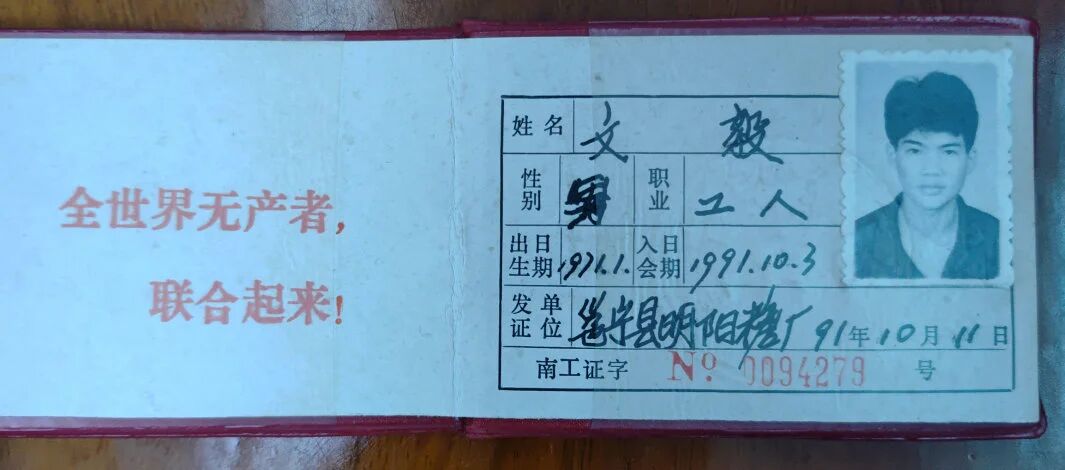 全世界无产者,
联合起来!
姓名 文毅
性别 男 职业 工人
出生日期 1971.1. 入会日期 1991.10.3
发证单位 邕宁县明阳糖厂 91年10月11日
南工证字 Nº 0094279 号